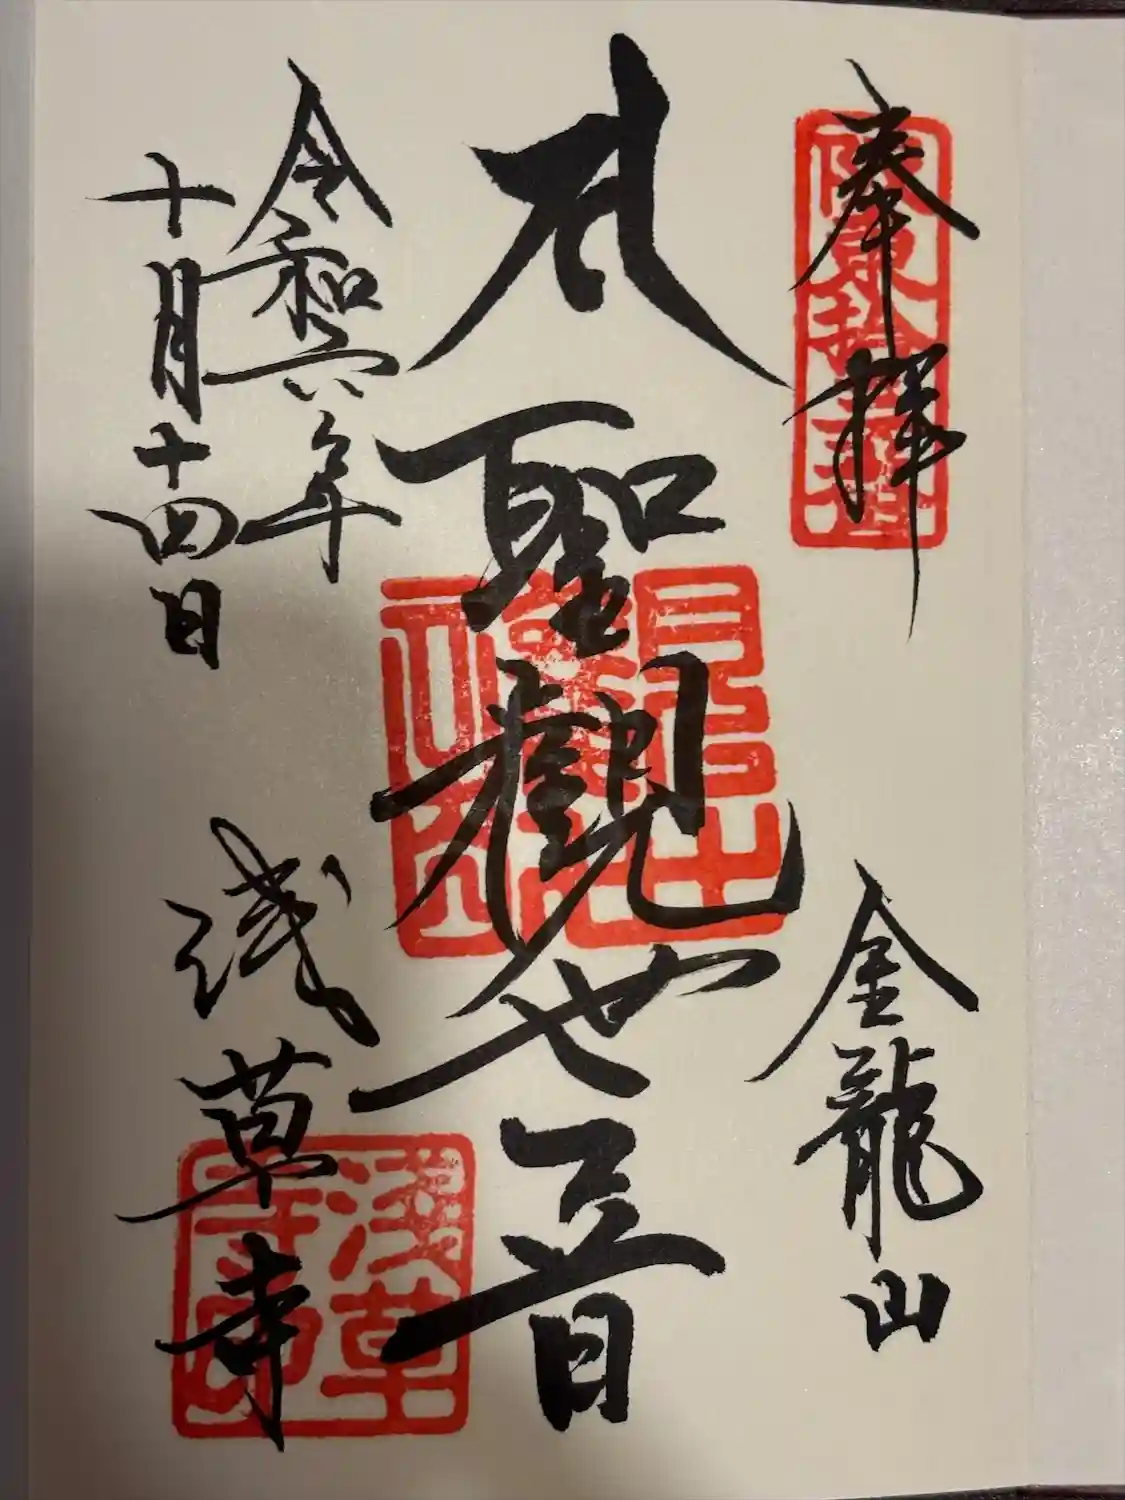 奉拝
金龍山
聖觀世音
令和六年
十月十四日
浅草寺
浅草寺印